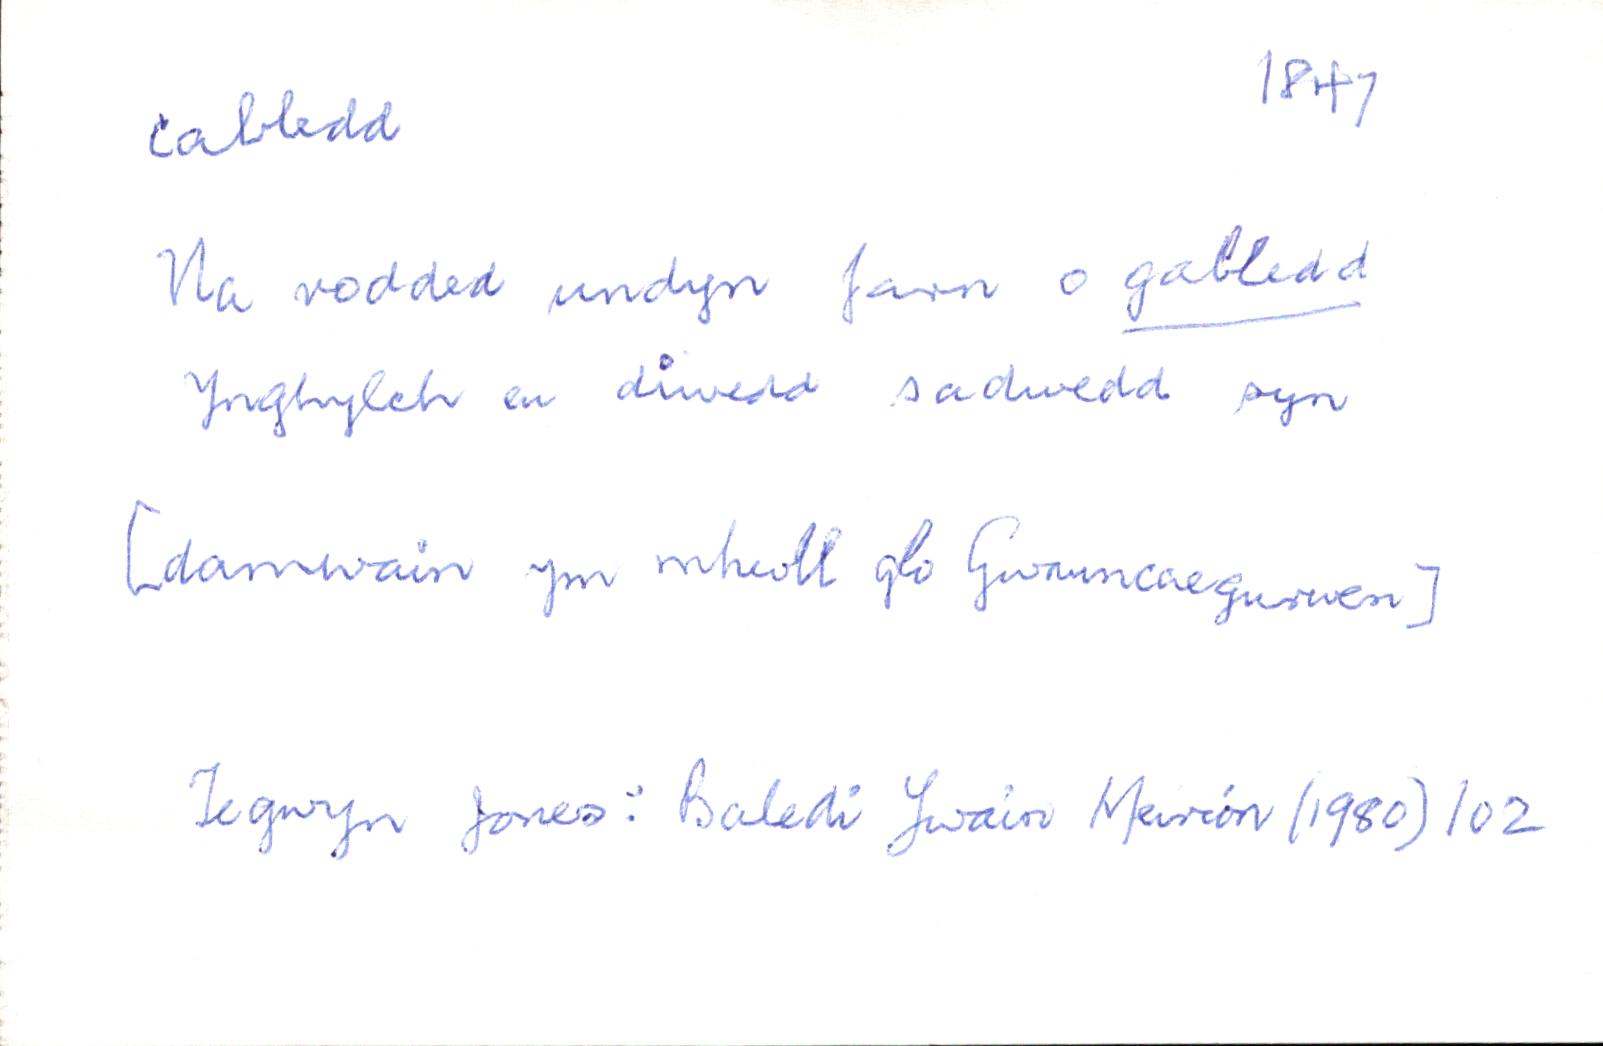 cabledd 1847
Na rodded undyn farn o gabledd
Ynghylch eu diwedd sadwedd syn
[damwain ym mhwll glo Gwauncaegurwen]
Tegwyn Jones: Baledi Ywain Meirion (1980) 102